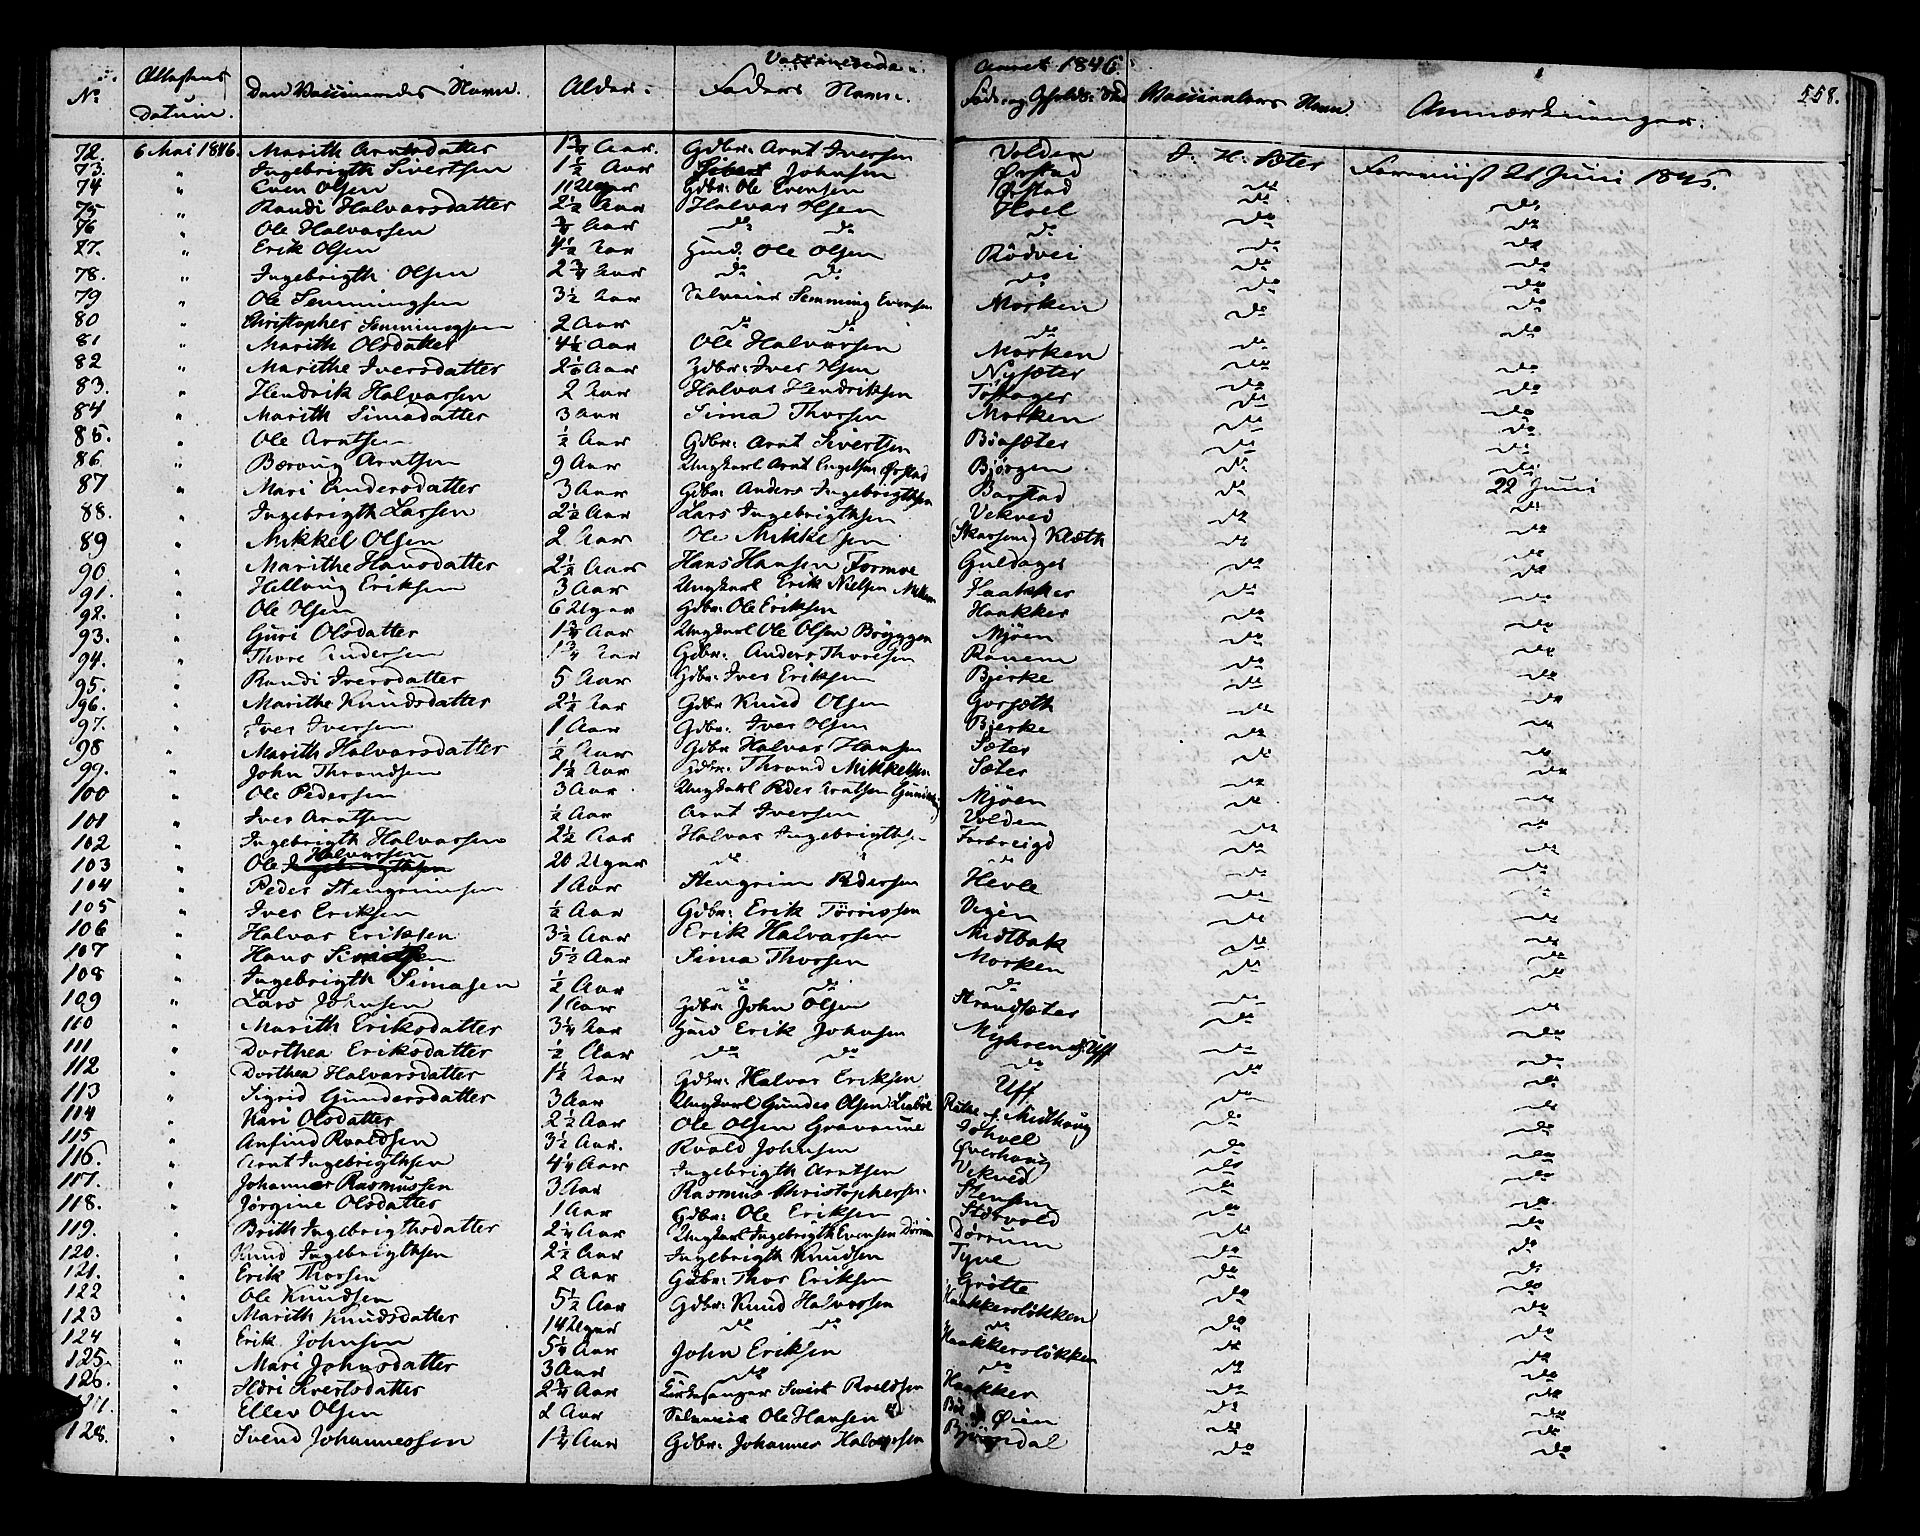 Vaccinerede Aaret 1846. 558.
No Attestens Datum. Den Vaccineredes Navn. Alder. Faders Navn. Føde og Opholds Sted Vaccinateurs Navn. Anmærkninger.
72. 6 Mai 1846. Marith Arntsdatter 1¾ Aar. Gdbr: Arnt Iversen Volden J. H. Sæter Foreviist 21 Juni 1845.
73. " Ingebrigth Sivertsen 1½ Aar Sivert Johnsen Ørstad do
74 " Even Olsen 11 Uger Gdbr: Ole Evensen Ørstad do
75 " Randi Halvorsdatter 2½ Aar Halvor Olsen Hoel do do
76 " Ole Halvorsen Aar do do do do do
77. " Erik Olsen 4½ Aar Huusd: Ole Olsen Rødvei do do
78. " Ingebrigth Olsen 2¾ Aar do do do do do
79 " Ole Semmingsen 3½ Aar Selveier Semming Evensen Morken do do
80 " Christopher Semmingsen 2 Aar do do do do do
81 " Marith Olsdatter 4½ Aar Ole Halvorsen Morken do do
82 " Marithe Iversdatter 2½ Aar Gdbr: Iver Olsen Nysæter do do
83. " Hendrik Halvorsen 2 Aar Halvor Hendriksen do do
84 " Marith Simadatter 3 Aar Sima Thorsen Morken do do
85. " Ole Arntsen ½ Aar Gdbr: Arnt Sivertsen do do
86. " Arntsen 9 Aar Ungkarl Arnt Engelsen Ørstad Bjørgen do do
87 " Mari Andersdatter 3 Aar Gdbr: Anders Ingebrigthsen Barstad do 22 Juni
88. " Ingebrigth Larsen 2½ Aar Lars Ingebrigthsen Vekvei do do
89 " Mikkel Olsen 2 Aar Ole Mikkelsen do do
90 " Marithe Hansdatter 2½ Aar Hans Hansen Formoe do do
91. " Erik­sen 3 Aar Ungkarl Erik Nielsen Haakker do do
92. " Ole Olsen 6 Uger Gdbr: Ole Eriksen Haakker do do
93. " Guri Olsdatter 1¾ Aar Ungkarl Ole Olsen Bryggen Mjøen do do
94. " Thore Andersen 1¾ Aar Gdbr: Anders Thoresen do do
95. " Randi Iversdatter 5 Aar Gdbr: Iver Eriksen Bjerke do do
96. " Marithe Knudsdatter 2½ Aar Gdbr Knud Olsen Gorsæth do do
97. " Iver Iversen 1 Aar Gdbr: Iver Olsen Bjerke do do
98 " Marith Halvorsdatter ½ Aar Gdbr Halvor Hansen Sæter do do
99. " John Throndsen 1½ Aar Gdbr: Thrond Mikkelsen Sæter do do
100 " Ole Pedersen 3 Aar Ungkarl Peder Arntsen Mjøen do do
101 " Iver Arntsen ½ Aar Arnt Iversen Volden do do
102 " Ingebrigth Halvorsen 2½ Aar Halvor Ingebrigthsen do do
103 " Ole Halvorsen 20 Uger do do do do
104 " Peder Stengrimsen 1 Aar Stengrim Pedersen Hevle do do
105 " Iver Eriksen ½ Aar Gdbr: Erik Tørrissen Vigen do do
106 " Halvor Eriksen 3½ Aar Erik Halvorsen Midtbak do do
107 " Hans 5½ Aar Sima Thorsen Morken do do
108 " Ingebrigth Simasen ½ Aar do do do do do
109 " Lars Johnsen 1 Aar Gdbr: John Olsen Strandsæter do do
110 " Marith Eriksdatter 3¼ Aar Huusd Erik Johnsen Myhren u: Uff do do
111 " Dorthea Eriksdatter ½ Aar do do do do do
112 " Dorthea Halvorsdatter 1½ Aar Gdbr: Halvor Eriksen Uff do do
113 " Sigrid Gundersdatter 3 Aar Ungkarl Gunder Olsen Midthaug do do
114 " Kari Olsdatter 2½ Aar Ole Olsen Gravaune do do
115 " Anfind Roaldsen 3½ Aar. Roald Johnsen Øverhaug do do
116. " Arnt Ingebrigthsen 4¼ Aar Ingebrigth Arntsen Vekved do do
117. " Johannes Rasmussen 3 Aar Rasmus Christophersen Stensen do do
118. " Jørgine Olsdatter 1 Aar Gdbr: Ole Eriksen do do
119. " Brith Ingebrigthsdatter 2½ Aar Ungkarl Ingebrigth Evensen Dørrum Dørrum do do
120. " Knud Ingebrigthsen 2½ Aar Ingebrigth Knudsen do do
121. " Erik Thorsen 2 Aar Gdbr: Thor Eriksen Grøtte do do
122 " Ole Knudsen 5½ Aar Gdbr: Knud Halvorsen Haakkersløkken do do
123 " Marith Knudsdatter 14 Uger do do do do do
124 " Erik Johnsen 5¼ Aar John Eriksen Haakkersløkken do do
125. " Mari Johnsdatter 3 Aar do do do do
126. " Sivertsdatter 2¾ Aar Kirkesanger Sivert Roaldsen Haakker do do
127. " Ellev Olsen 2 Aar Selveier Ole Hansen Øien do do
128. " Svend Johannessen 1¾ Aar Gdbr: Johannes Halvorsen Bjørndal do do